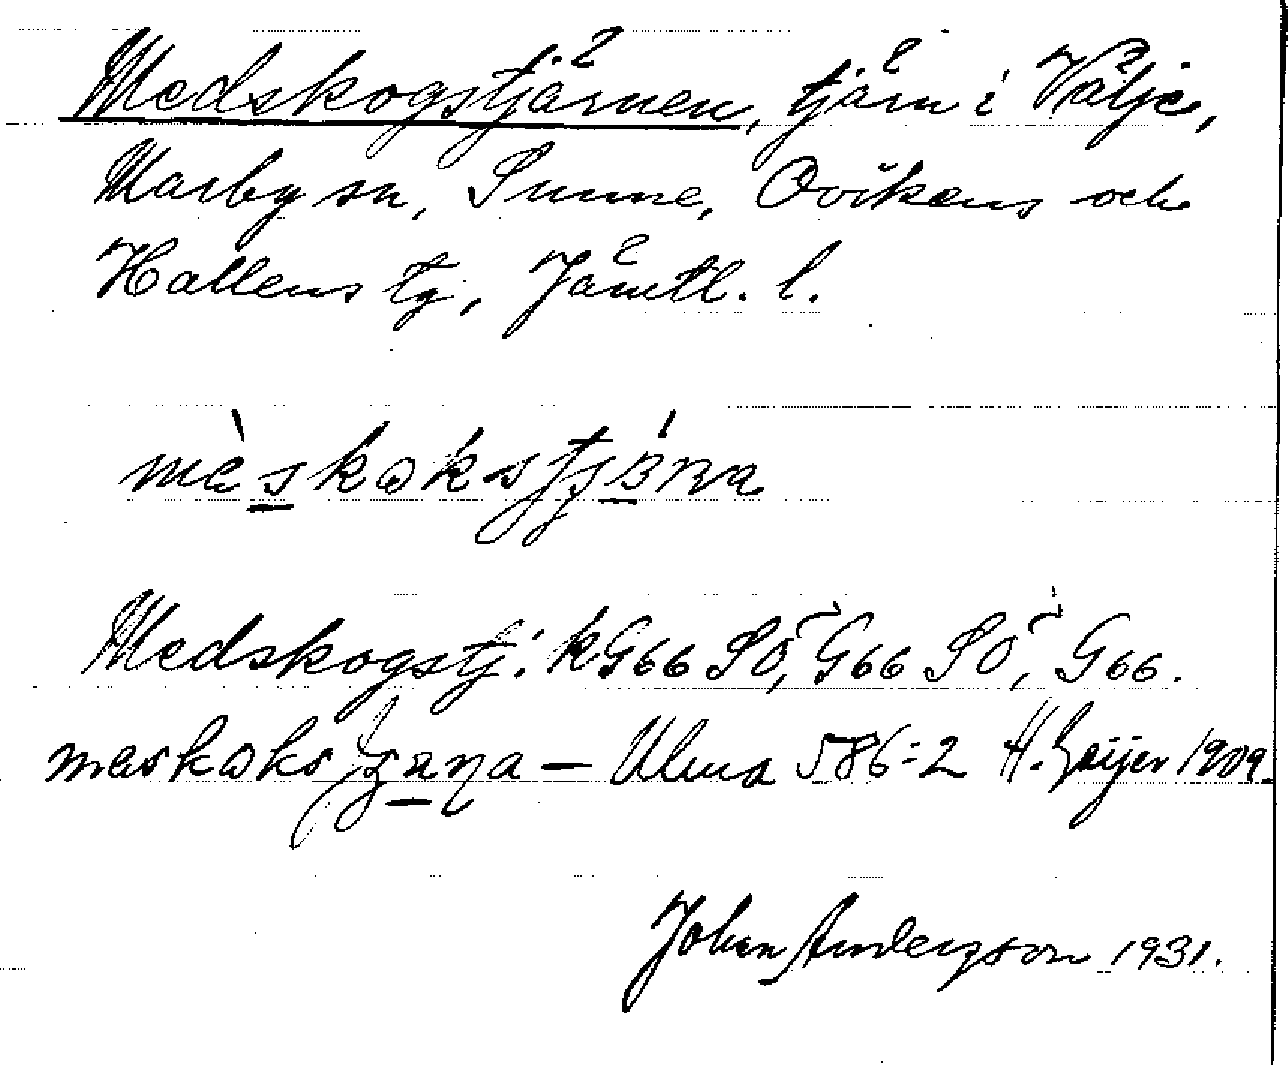 Medskogstjärnen, tjärn i Välje,
Marby sn, Sunne, Ovikens och
Hallens tg, Jämtl. l.
mèskokstjɜ́rna
Medskogstj: kG66 SÖ, G66 SÖ, G66.
meskoks — Ulma 586:2 H. Geijer 1909.
Johan Andersson 1931.